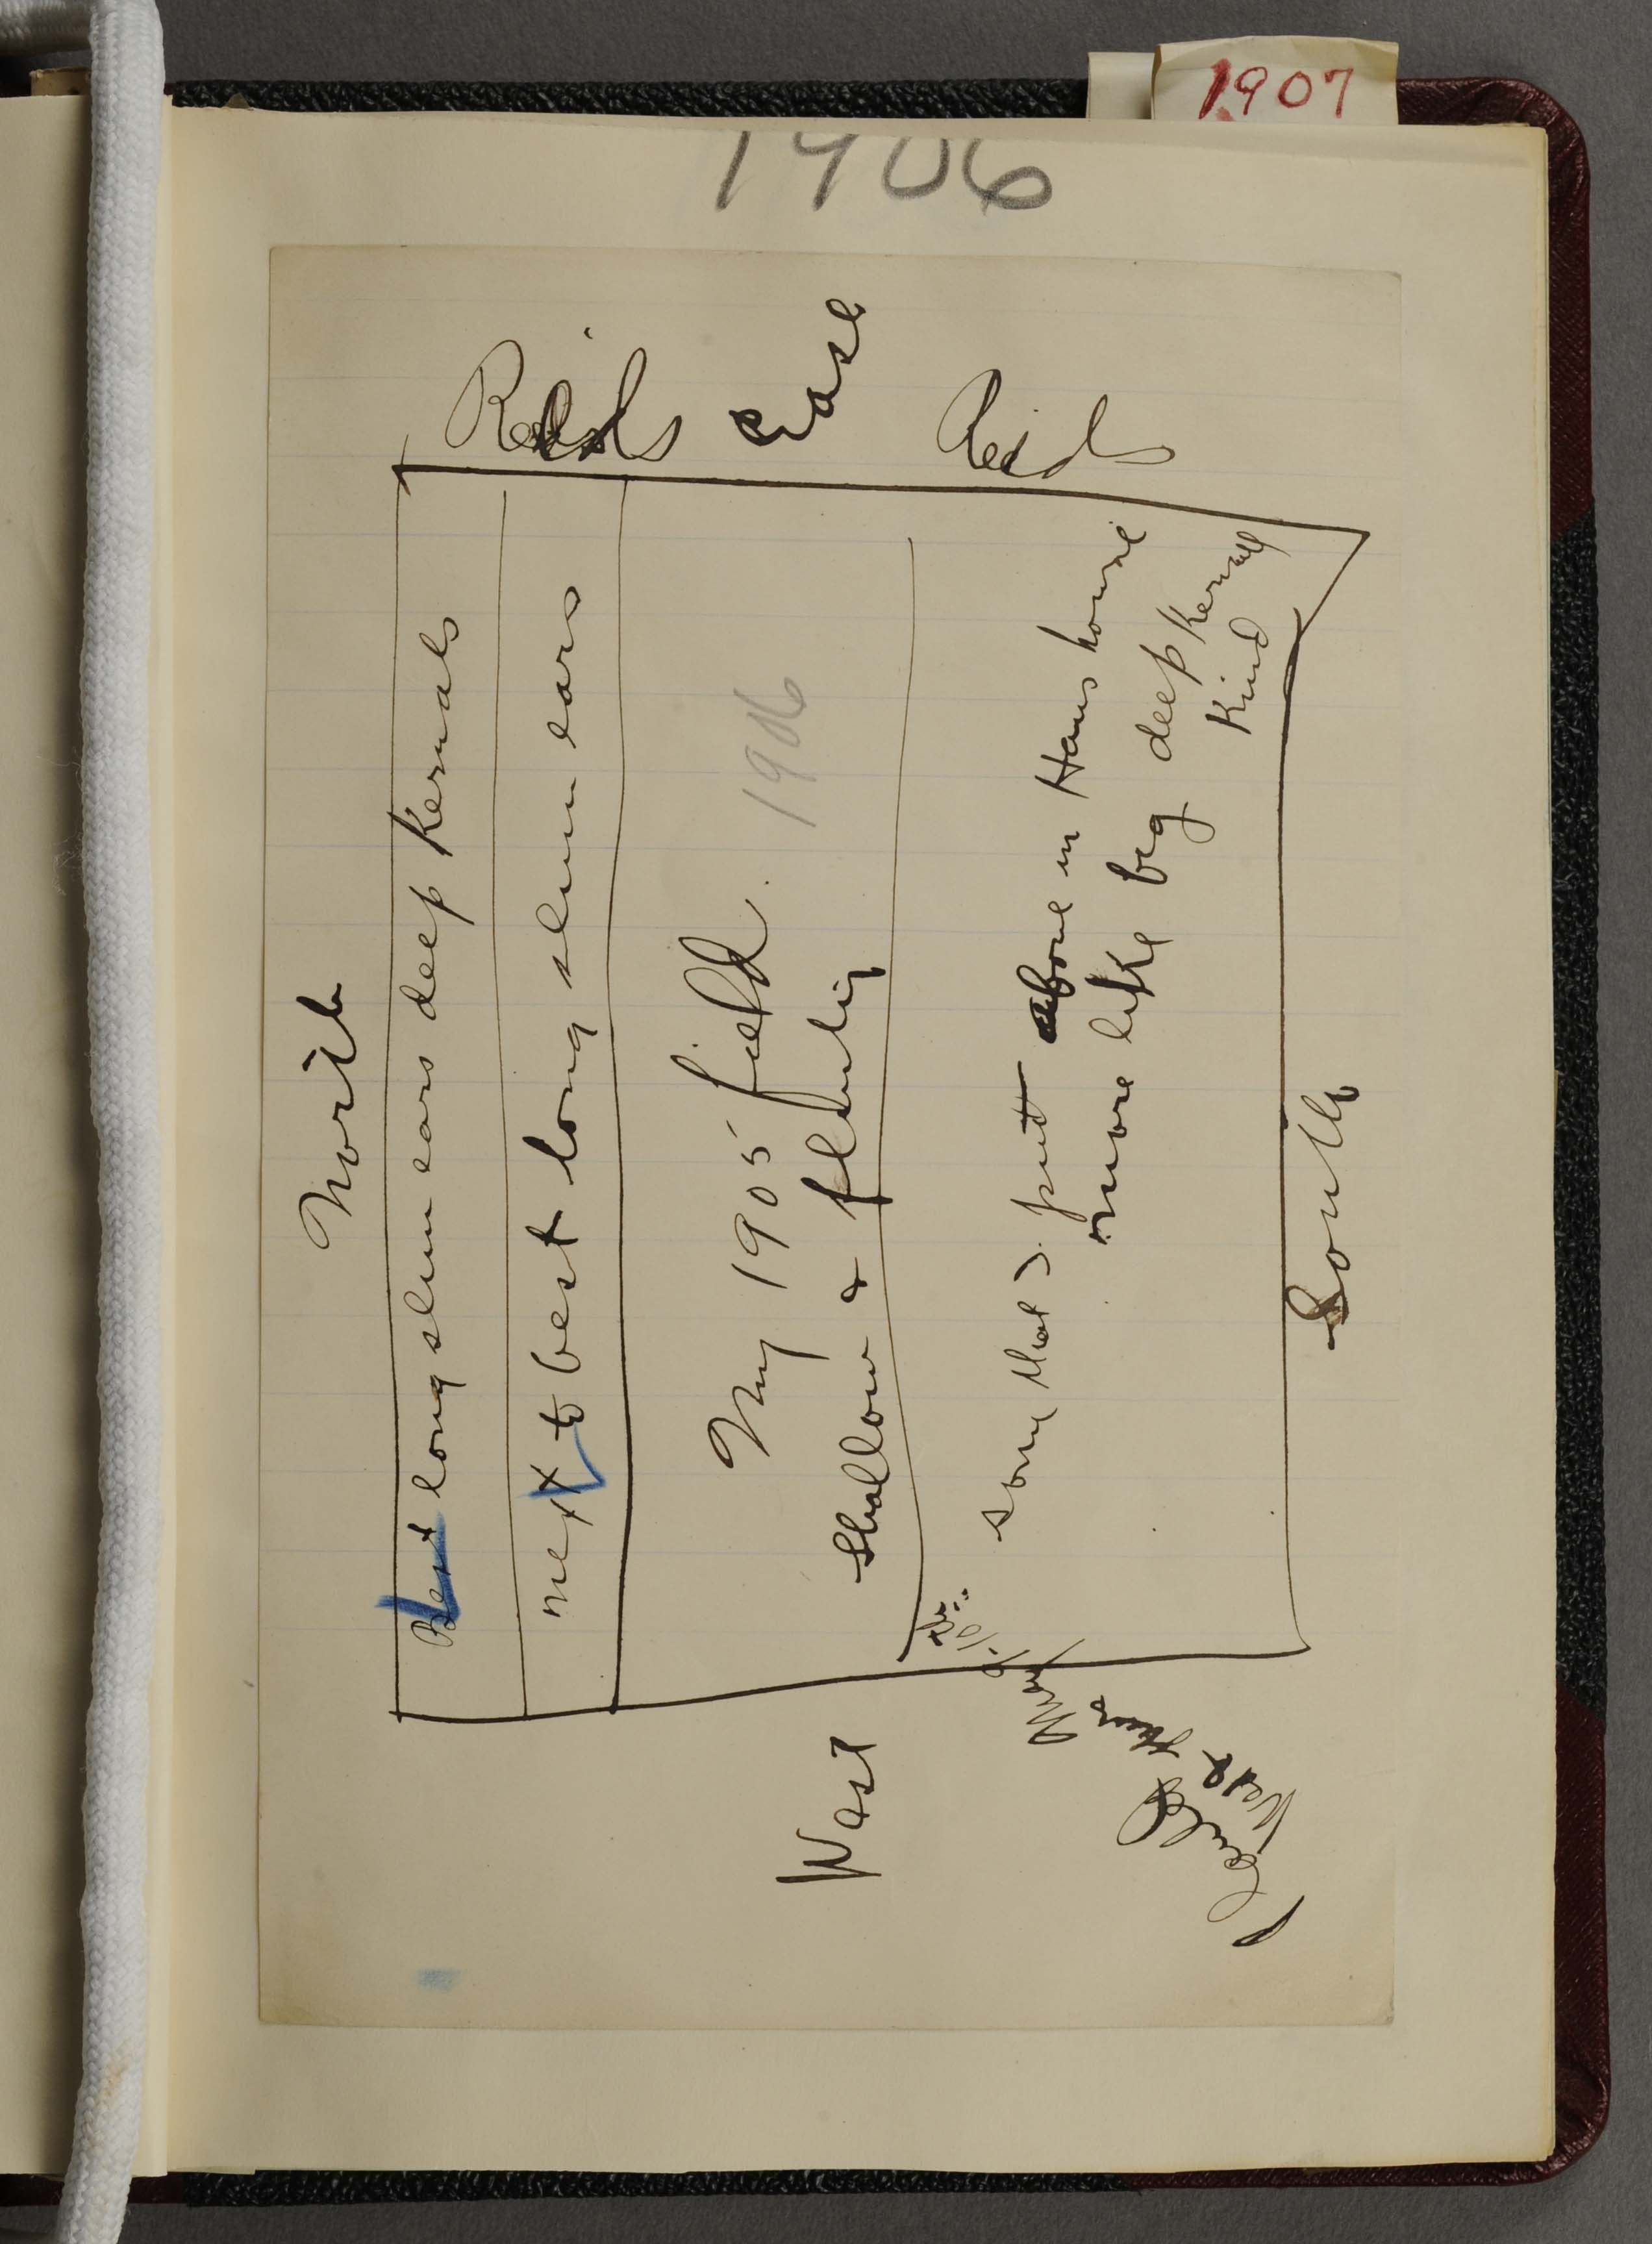 1907
1906
North
Best long slim ears deep Kernals
next to best long slim ears
My 1905 field. 1906
Shallow & flinty
some that I. put above in Haus house
more like big deep Kernall
Kind
South
West
Reids
East
Reids